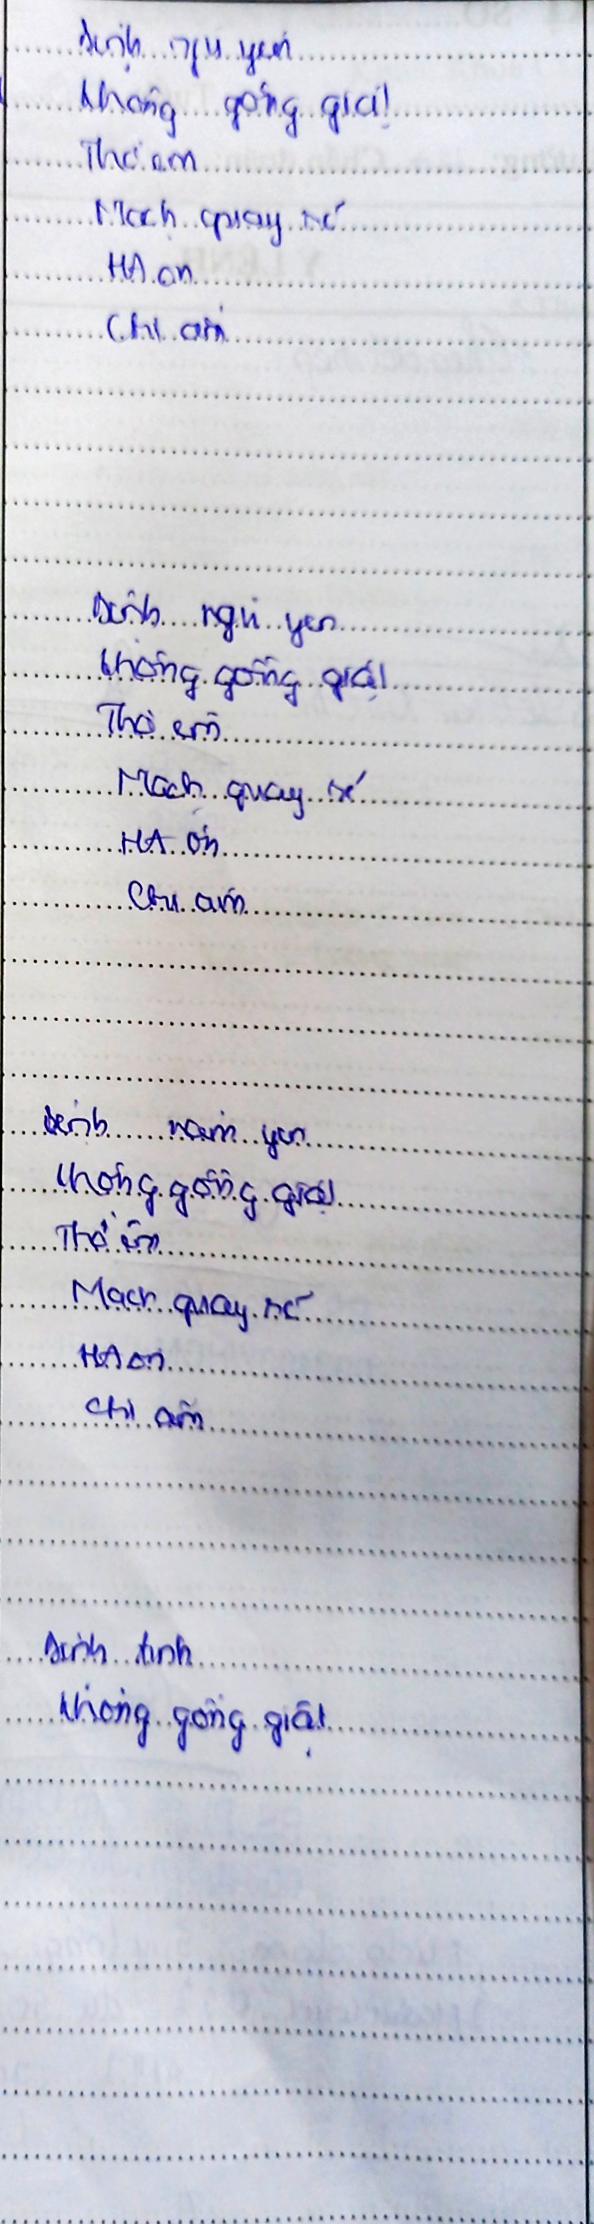 Bệnh ngủ yên
Không gồng giật
Thở êm
Mạch quay rõ
HA ổn
Chi ấm
Bệnh ngủ yên
Không gồng giật
Thở êm
Mạch quay rõ
HA ổn
Chi ấm
Bệnh nằm yên
Không gồng giật
Thở êm
Mạch quay rõ
HA ổn
Chi ấm
Bệnh tỉnh
Không gồng giật